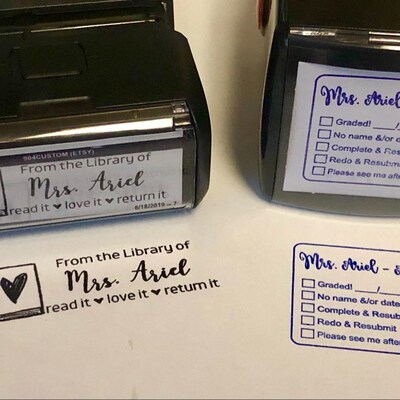 984CUSTOM (ETSY)
From the Library of
Mrs. Ariel
read it ♥ love it ♥ return it
6/18/2019
Mrs. Ariel
Graded! ___/
No name &/or d
Complete & Re
Redo & Resubm
Please see me af
From the Library of
Mrs. Ariel
read it ♥ love it ♥ return it
Mrs. Ariel -
Graded! ___/
No name &/or date
Complete & Resub
Redo & Resubmit
Please see me after